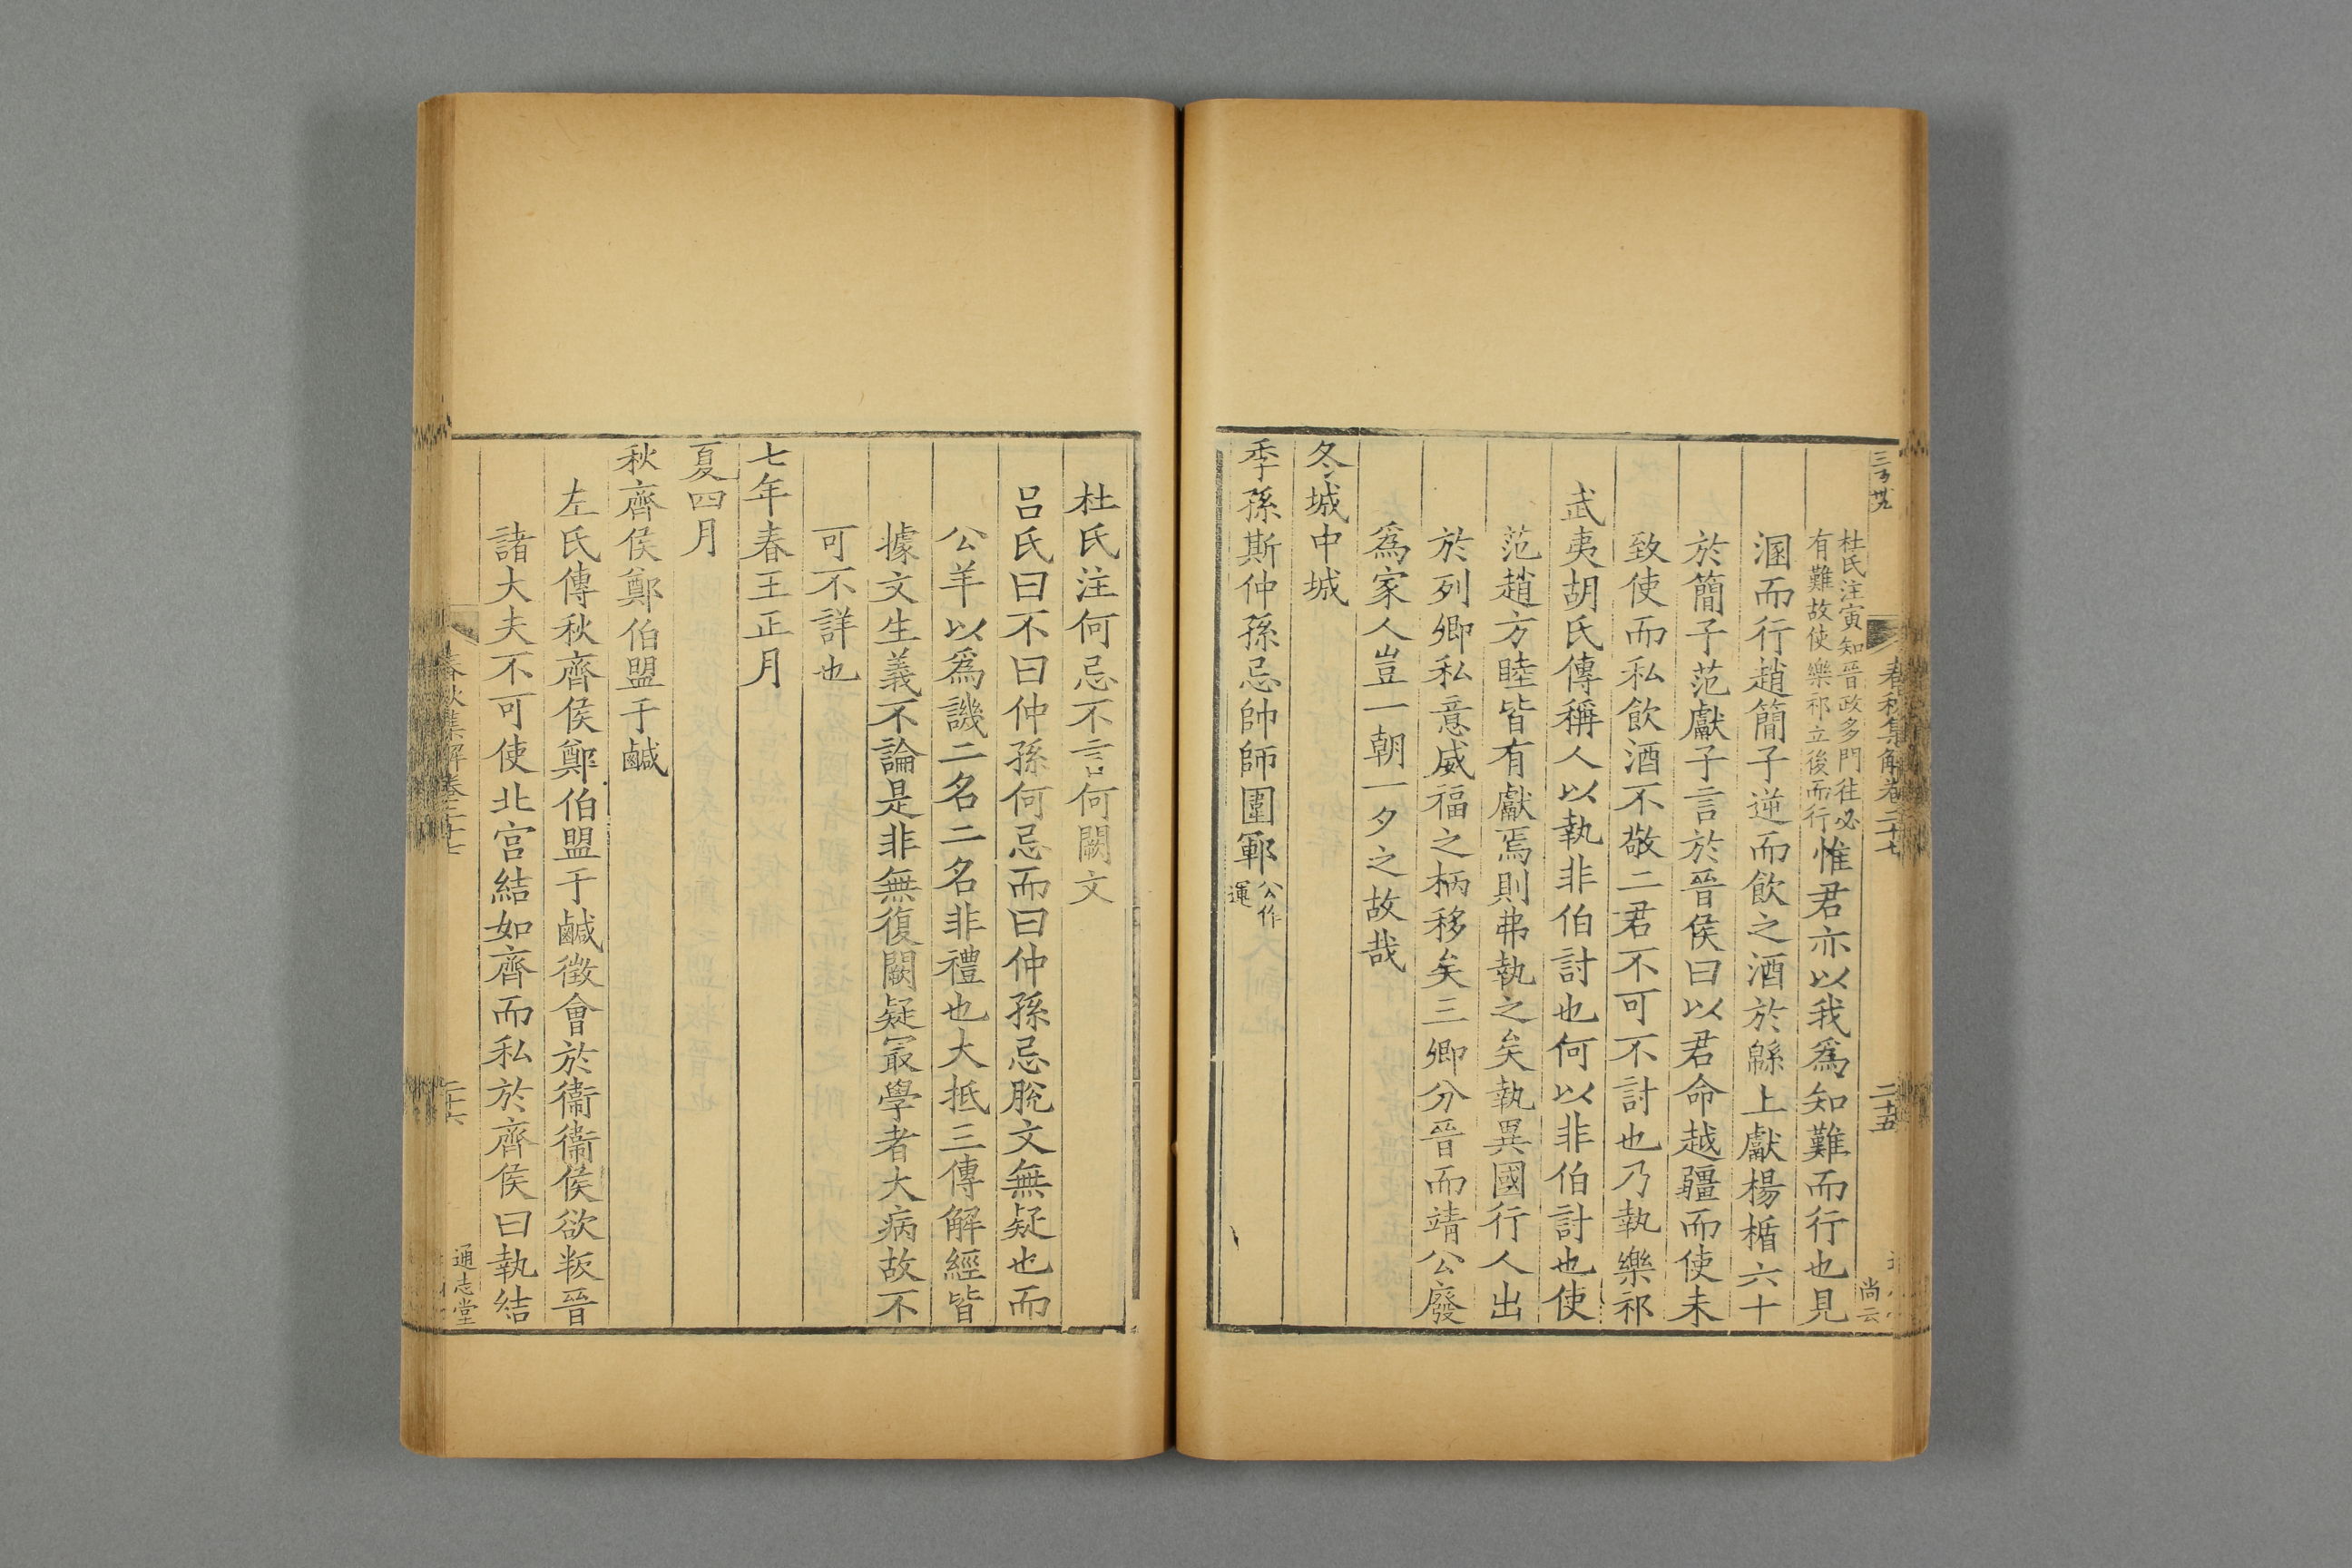 春秋集解卷二十七
二十五
尚云
杜氏注寅知晉政多門往必
有難故使樂祁立後而行
惟君亦以我爲知難而行也見
溷而行趙簡子逆而飲之酒於緜上獻楊楯六十
於簡子范獻子言於晉侯曰以君命越疆而使未
致使而私飲酒不敬二君不可不討也乃執樂祁
武夷胡氏傳稱人以執非伯討也何以非伯討也使
范趙方睦皆有獻焉則弗執之矣執異國行人出
於列卿私意威福之柄移矣三卿分晉而靖公廢
爲家人豈一朝一夕之故哉
冬城中城
季孫斯仲孫忌帥師圍鄆
公作
運
杜氏注何忌不言何闕文
呂氏曰不曰仲孫何忌而曰仲孫忌脫文無疑也而
公羊以爲譏二名二名非禮也大抵三傳解經皆
據文生義不論是非無復闕疑冣學者大病故不
可不詳也
七年春王正月
夏四月
秋齊侯鄭伯盟于鹹
左氏傳秋齊侯鄭伯盟于鹹徵會於衞衞侯欲叛晉
諸大夫不可使北宮結如齊而私於齊侯曰執結
春秋集解卷二十七
二十六
通志堂